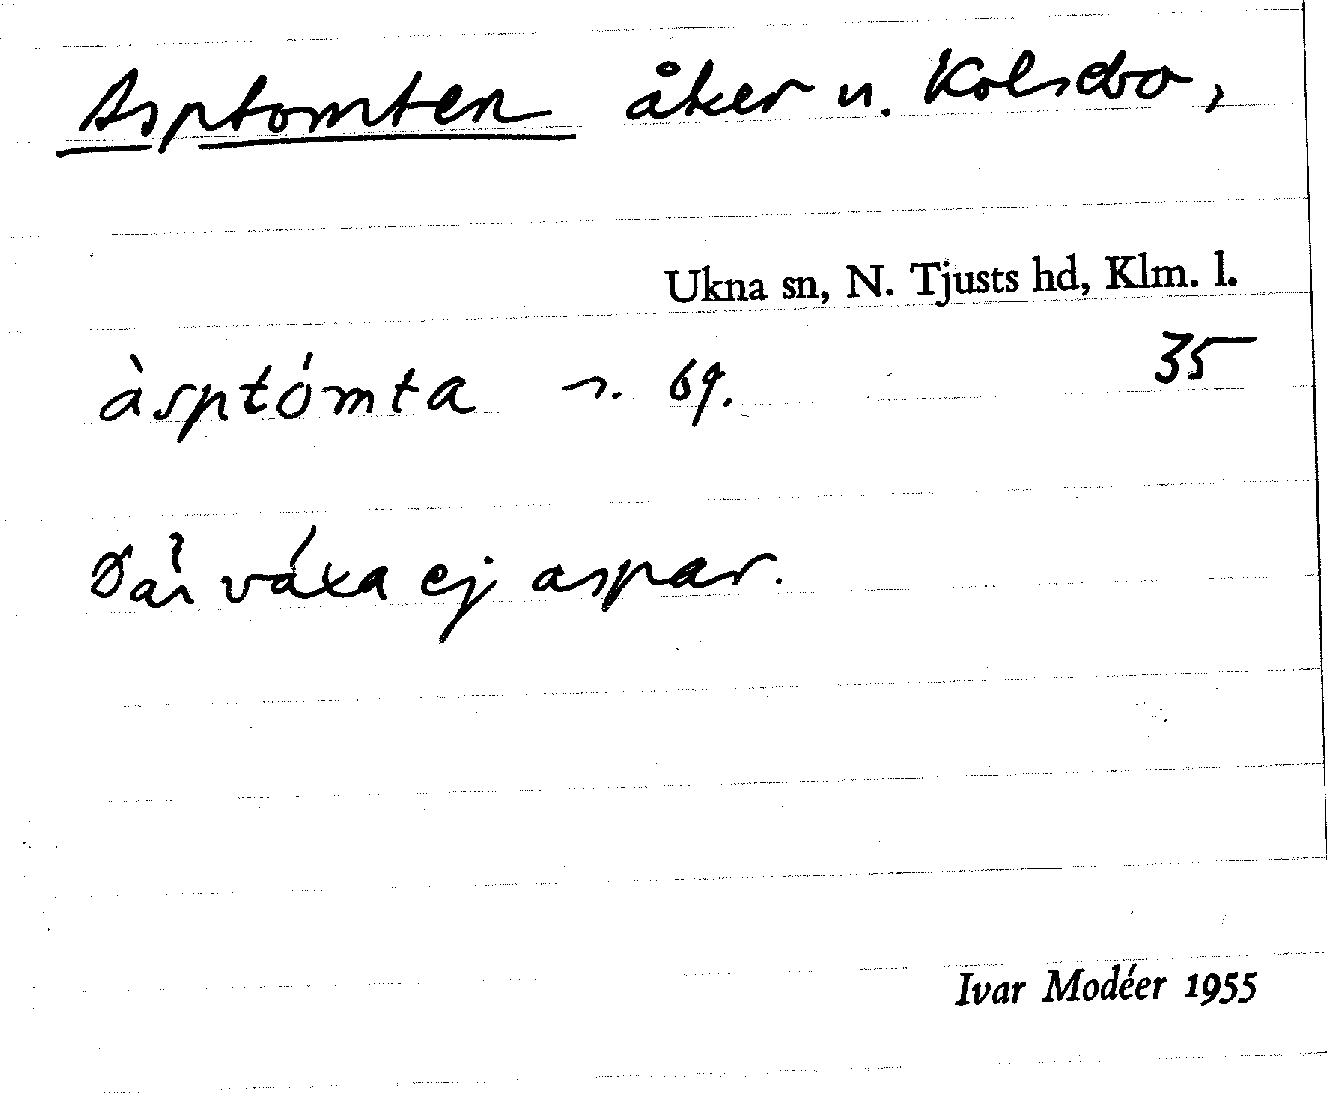 Asptomten åker u. Kolsebo,
Ukna sn, N. Tjusts hd, Klm. l.
àsptómta n. 69. 35
Där växa ej aspar.
Ivar Modéer 1955